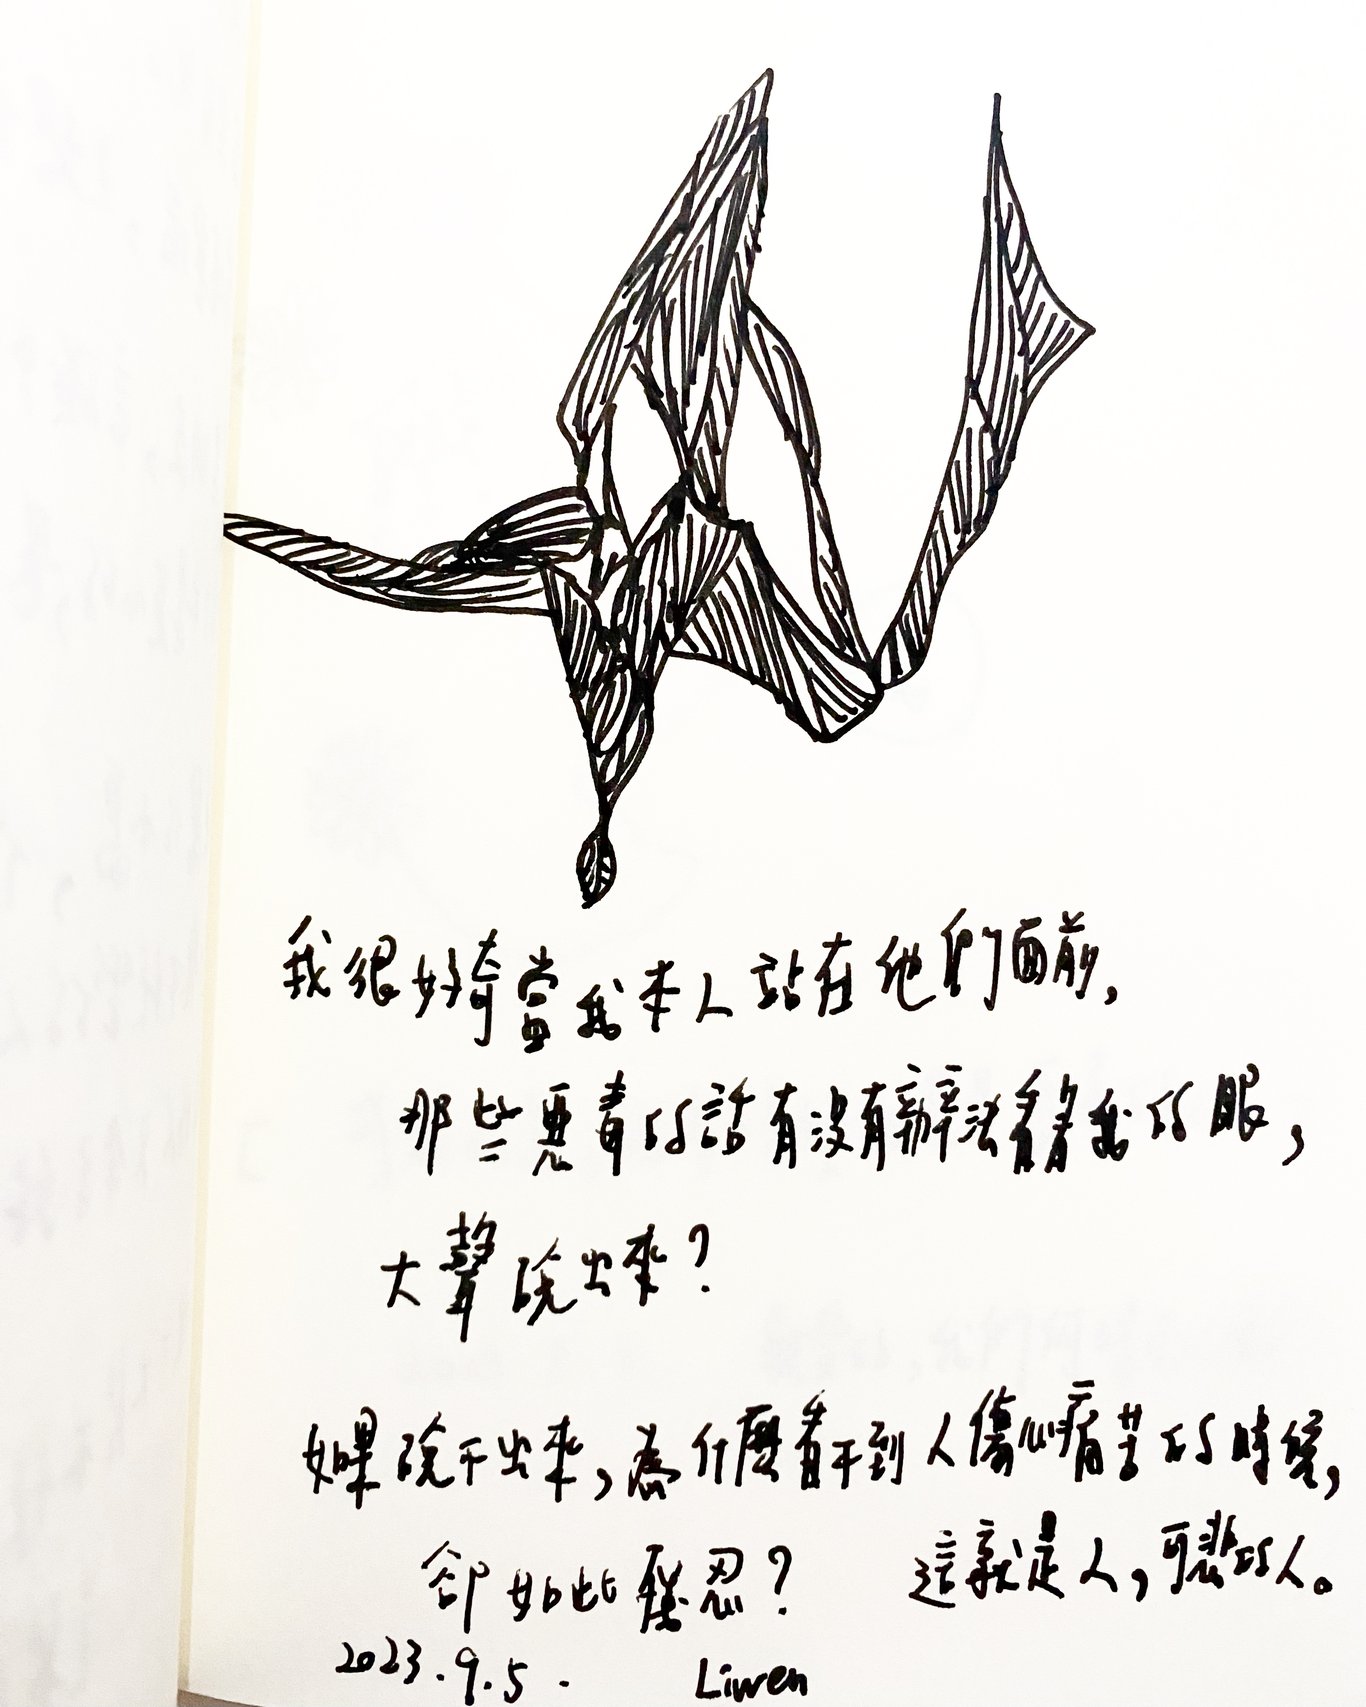 我很好奇當我本人站在他們面前，
那些惡毒的話有沒有辦法看著我的眼，
大聲說出來？
如果說不出來，為什麼看不到人傷心痛苦的時候，
卻如此殘忍？ 這就是人，可悲的人。
2023.9.5. Liwen